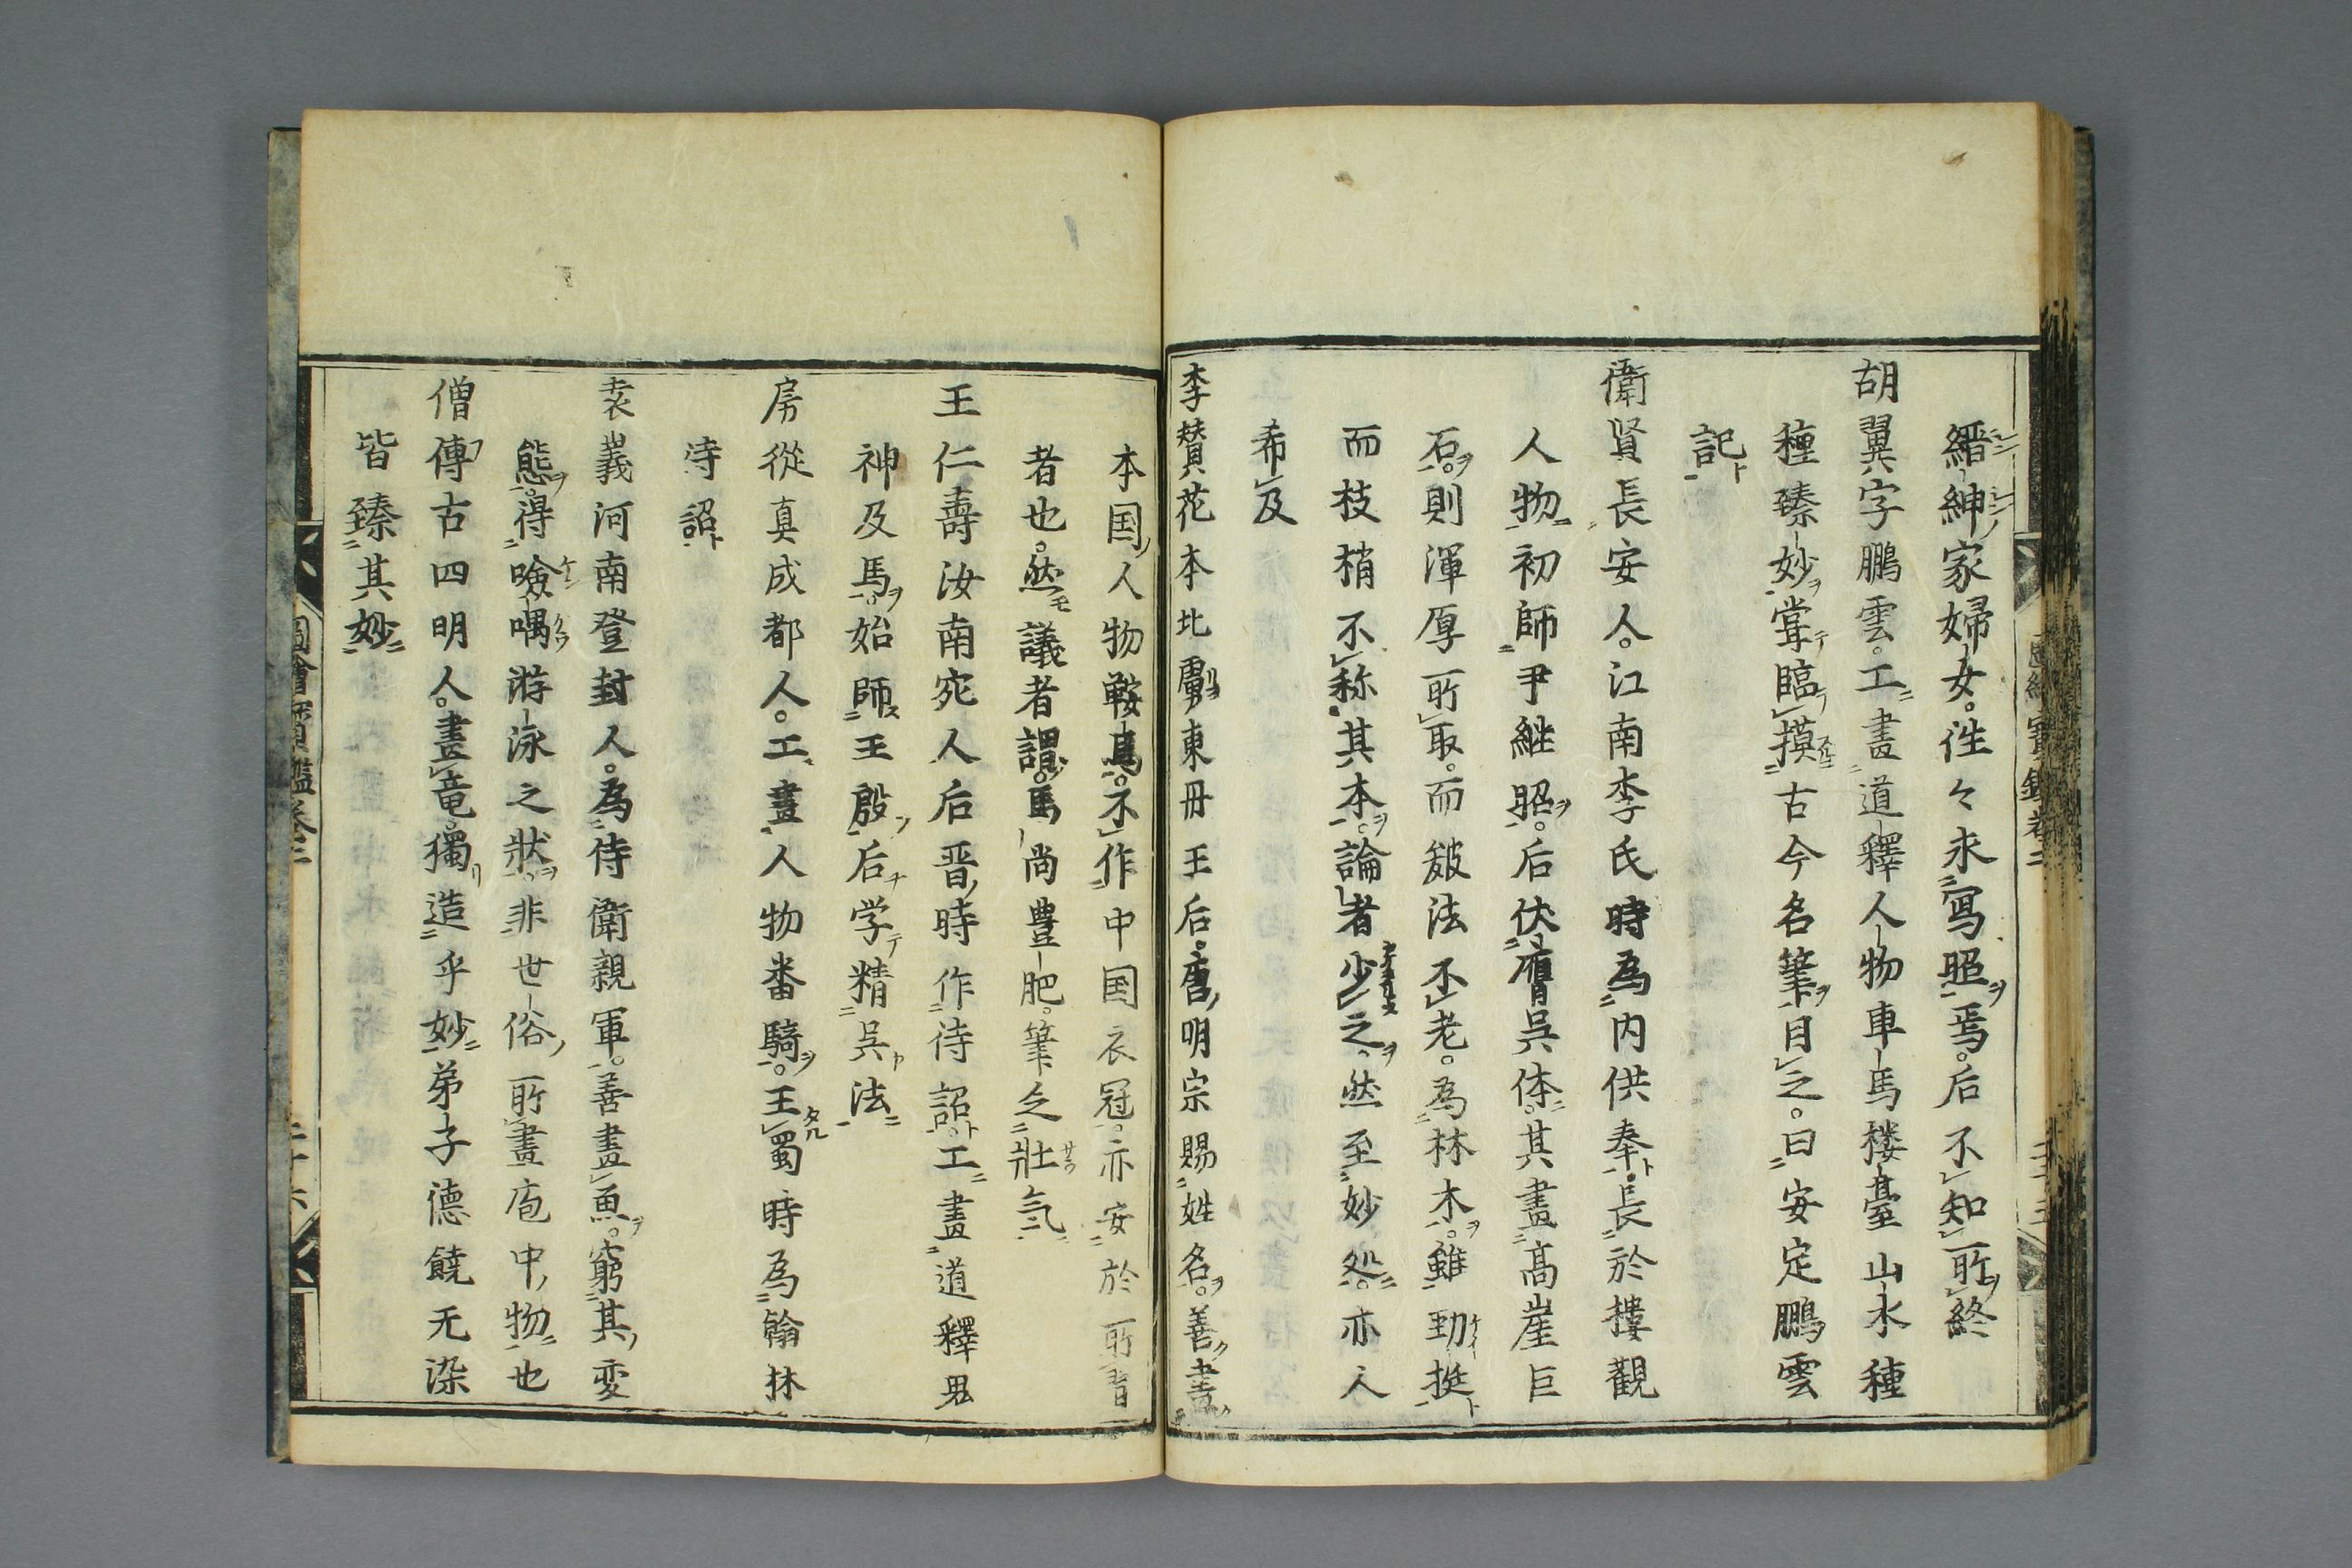 縉紳家婦女。往々求寫照焉。后不知所終
胡翼字鵬雲。工畫道釋人物車馬楼臺山水種
種臻妙甞臨摸古今名筆目之。曰安定鵬雲
記
衛賢長安人。江南李氏時為内供奉。長於樓觀
人物初師尹継昭。后伏膺呉体。其畫高崖巨
石。則渾厚可取。而皴法不老。為林木。雖勁挺
而枝梢不称其本。論者少之。然至妙処。亦人
希及
李賛花本北虜東丹王后唐明宗賜姓名。善畫
本国人物鞍馬。不作中国衣冠。亦安於所習
者也。然議者謂。馬尚豊肥。筆乏壮気
王仁壽汝南宛人后晋時作待詔。工畫道釋鬼
神及馬。始師王殷后学精呉法
房從真成都人。工畫人物番騎。王蜀時為翰林
待詔
袁義河南登封人。為侍衛親軍。善畫魚。窮其変
態。得噞喁游泳之狀。非世俗所畫庖中物也
僧傳古四明人。畫竜獨造乎妙弟子德饒无染
皆臻其妙
圖會寳鑑卷二